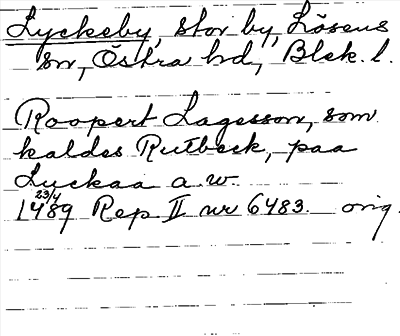 Lyckeby, stor by, Lösens
sn, Östra hd, Blek. l.
Roopert Lagesson, som
kaldes Rutbeck, paa
Lyckaa a.w.
23/4
1489 Rep II nr 6483. orig.